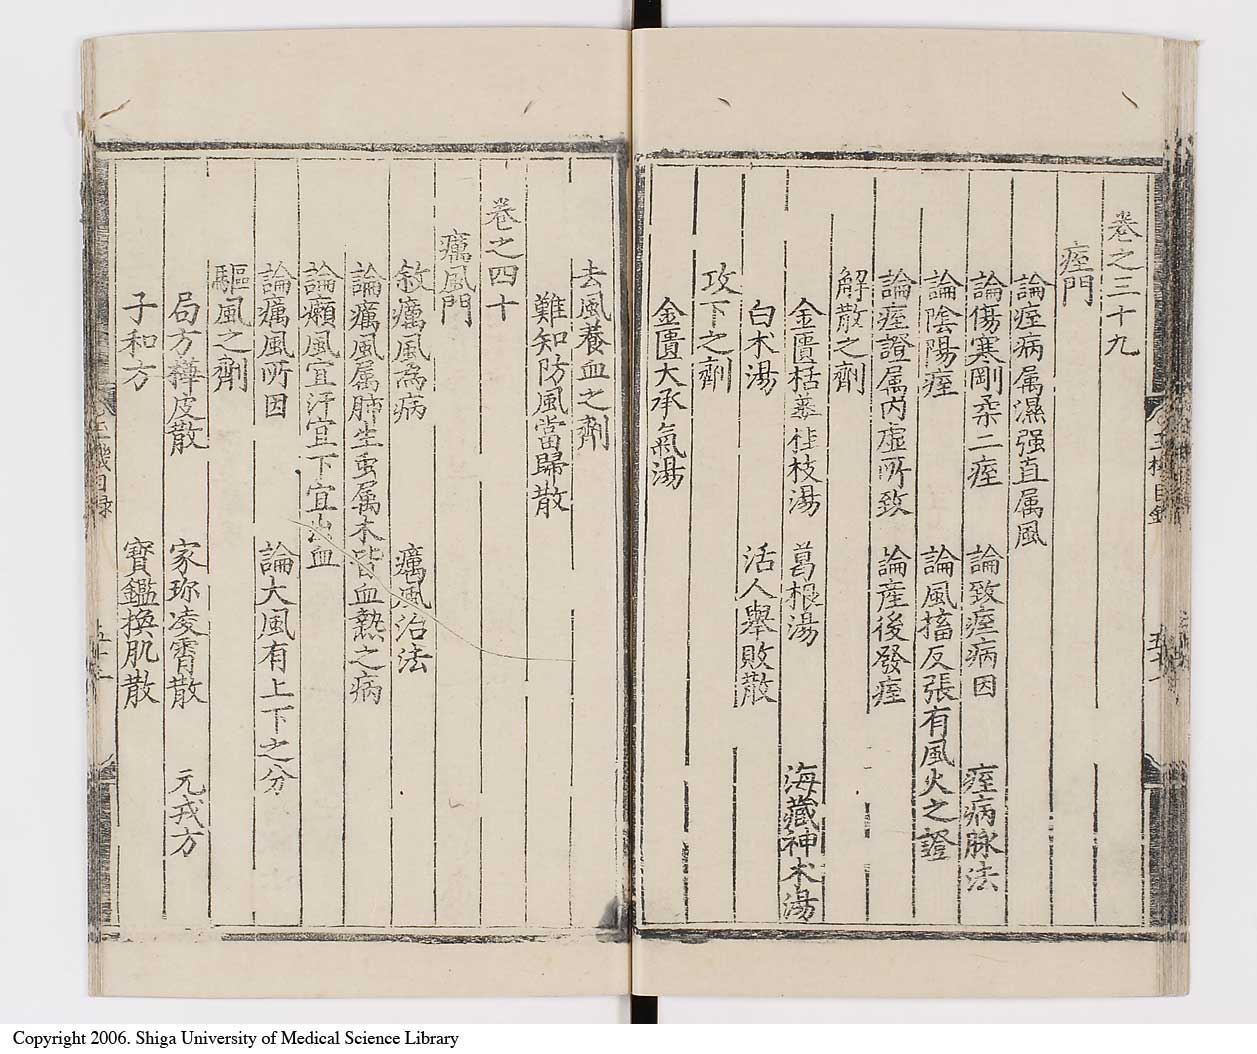 卷之三十九
痙門
論痙病属濕强直属風
論傷寒剛柔二痙 論致痙病因 痙病脉法
論陰陽痙 論風搐反張有風火之證
論痙證属内虚所致 論產後發痙
解散之劑
金匱栝蔞桂枝湯 葛根湯 海藏神朮湯
白朮湯 活人舉敗散
攻下之劑
金匱大承氣湯
去風養血之劑
難知防風當歸散
卷之四十
癘風門
敘癘風為病 癘風治法
論癘風属肺生虫属木皆血熱之病
論癩風宜汗宜下宜出血
論癘風所因 論大風有上下之分
驅風之劑
局方樺皮散 家珎凌霄散 元戎方
子和方 寶鑑換肌散
Copyright 2006. Shiga University of Medical Science Library